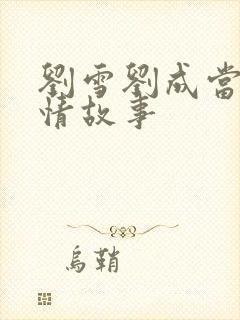 劉雪劉成當
情故事
烏鞘